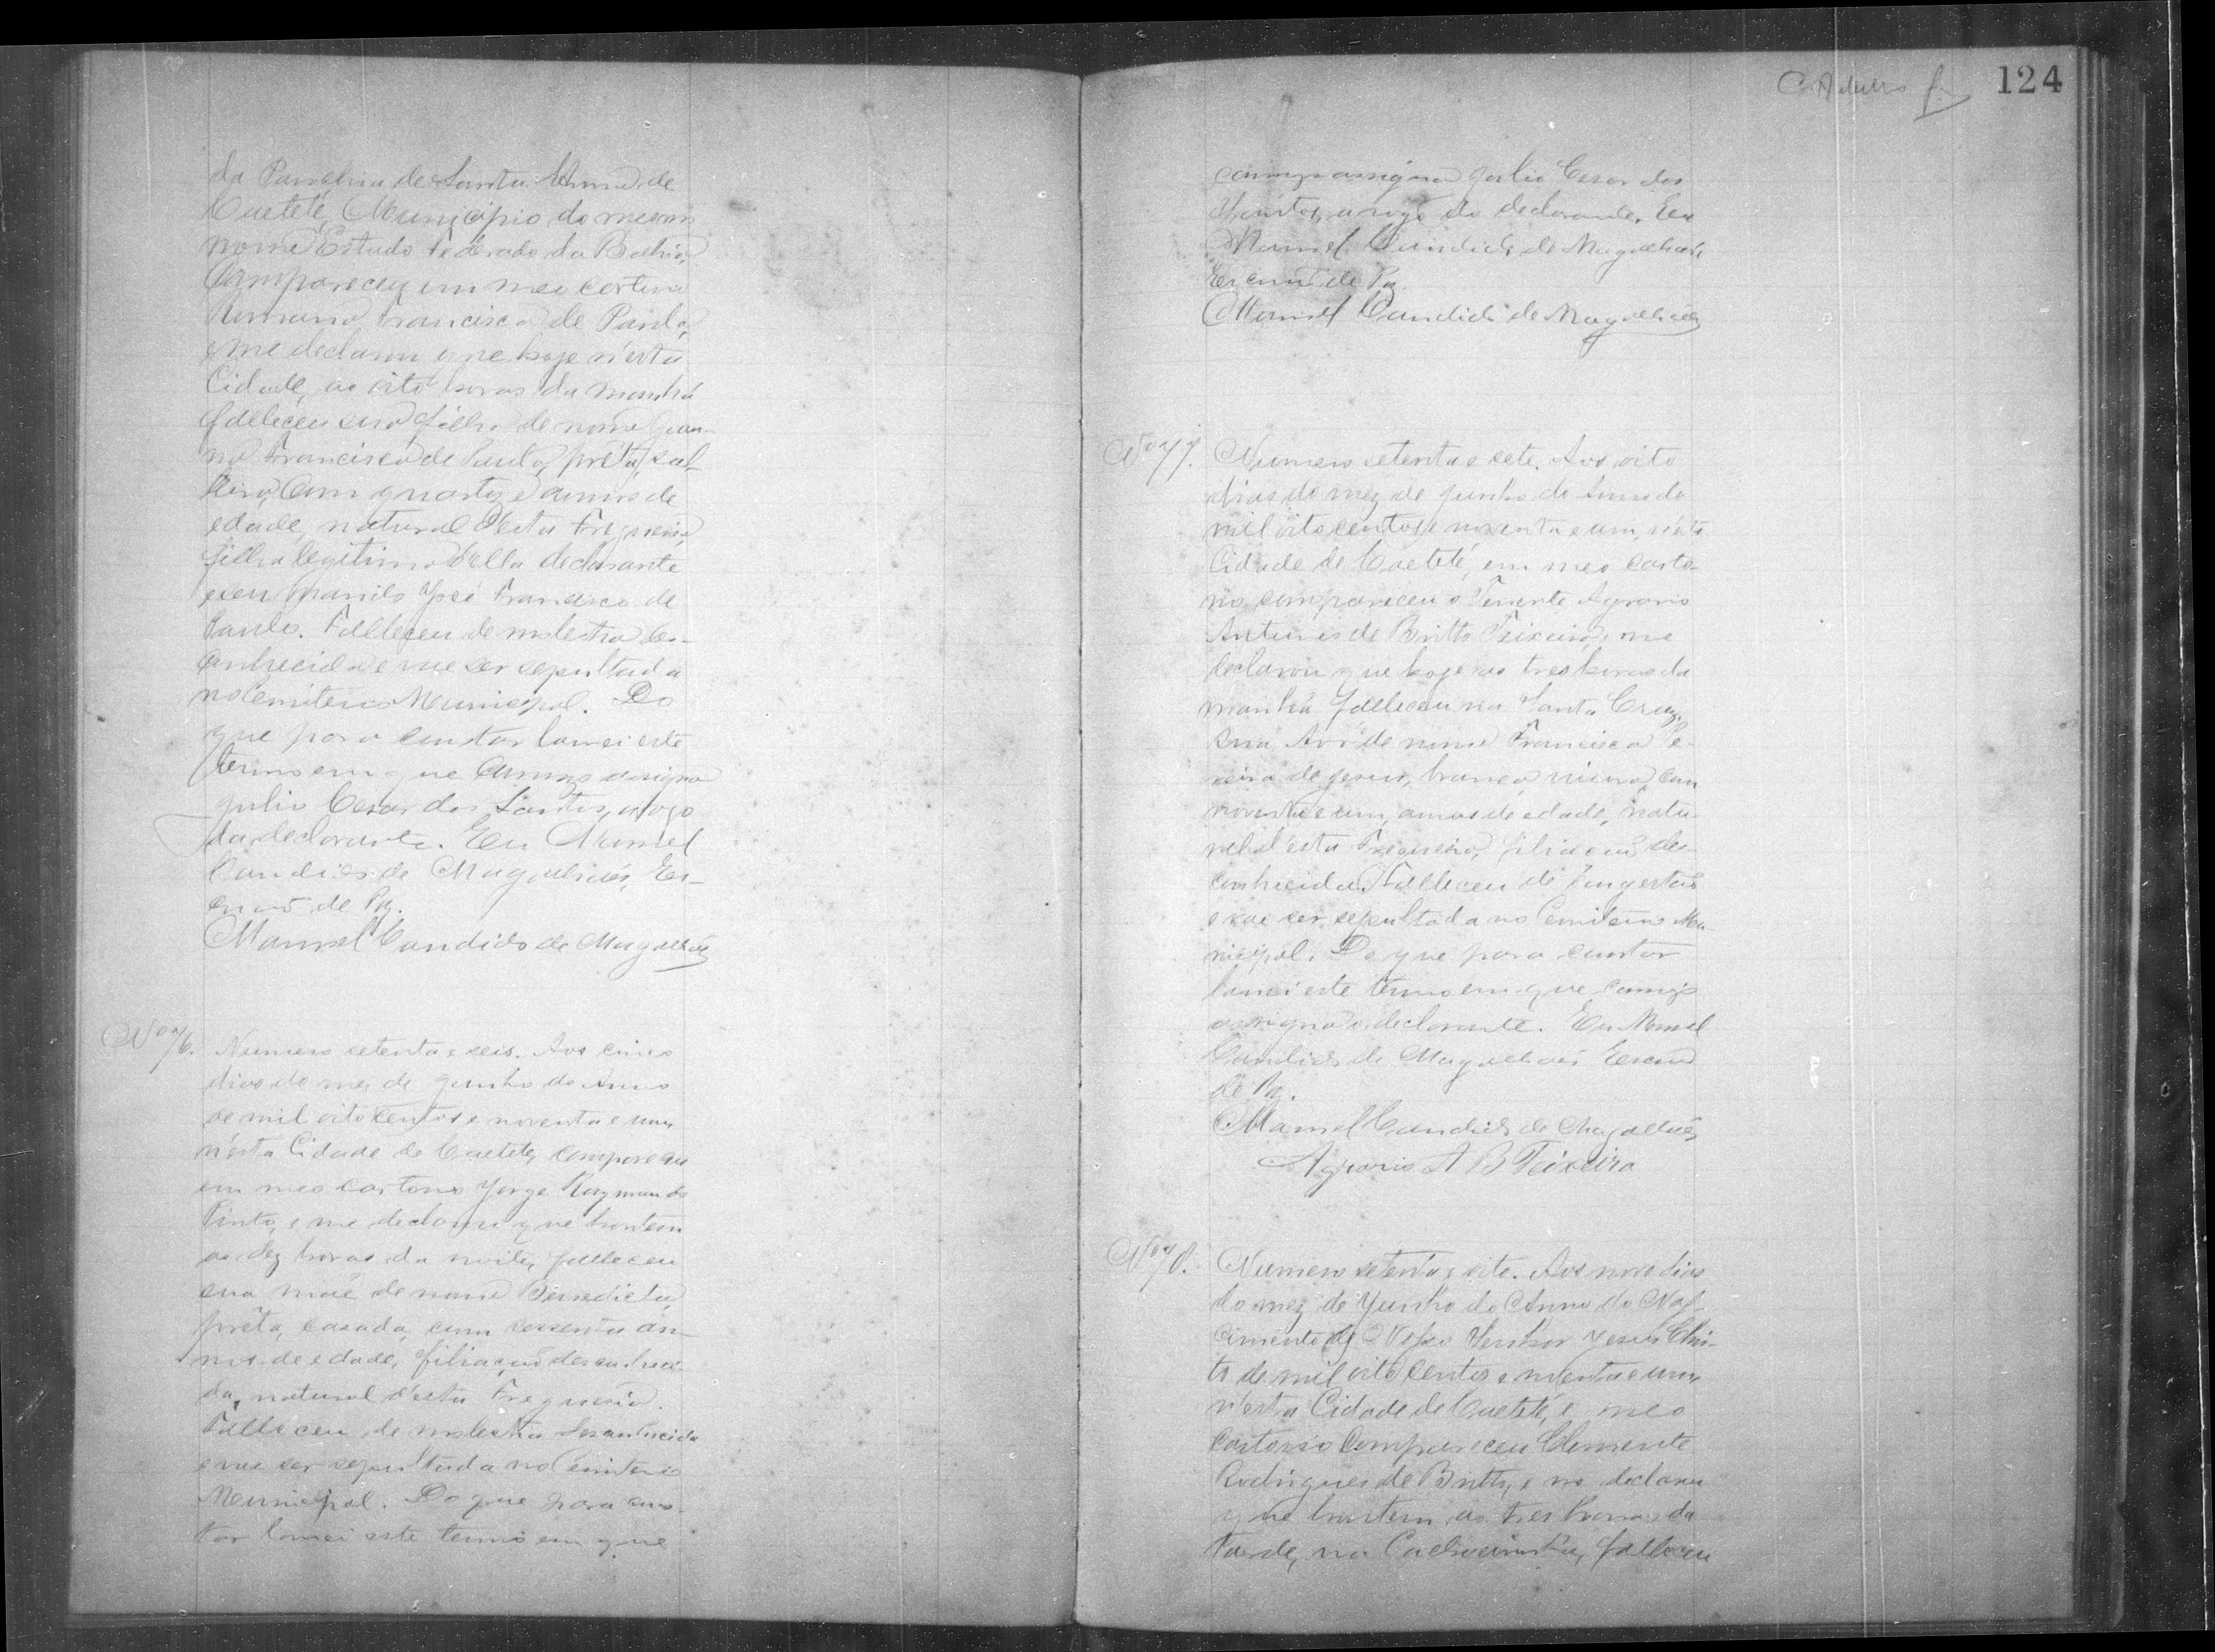 da Parochia de Santa Anna de
Caeteté, Municipio do mesmo
nome Estado Federado da Bahia,
Compareceu em meo cartorio
Romana Francisca de Paula,
e me declarou que hoje n'esta
Cidade, as oito horas da manhã
falleceu sua filha de nome Joan-
na Francisca de Paula, preta, sol-
teira, com quatorze annos de
edade, natural d'esta Freguesia,
filha legitima d'ella declarante
e seu marido José Francisco de
Paula. Falleceu de molestia des-
conhecida e vae ser sepultada
no Cemiterio Municipal. Do
que para constar lancei este
termo em que commigo assigna
Julio Cesar dos Santos, a rogo
da declarante. Eu Manoel
Candido de Magalhães, Es-
crivão de Paz.
Manoel Candido de Magalhães
Nº 76.
Numero setenta e seis. Aos cinco
dias do mez de Junho do Anno
de mil oito centos e noventa e um
n'esta Cidade de Caeteté, compareceu
em meo cartorio Jorge Raymundo
Pinto, e me declarou que hontem
as dez horas da noite, falleceu
sua mãe de nome Benedicta,
preta, casada, com sessenta an-
nos de edade, filiação desconheci-
da, natural d'esta Freguesia.
Falleceu de molestia desconhecida
e vae ser sepultada no Cemiterio
Municipal. Do que para cons-
tar lancei este termo em que
124
commigo assigna Julio Cesar dos
Santos, a rogo do declarante. Eu
Manoel Candido de Magalhães,
Escrivão de Paz.
Manoel Candido de Magalhães
Nº 77.
Numero setenta e sete. Aos oito
dias do mez de Junho do Anno de
mil oito centos e noventa e um, n'esta
Cidade de Caeteté, em meo carto-
rio, compareceu o Tenente Agrario
Antunes de Britto Teixeira, e me
declarou que hoje as tres horas da
manhã falleceu na Santa Cruz,
sua Avó de nome Francisca
de Jesus, branca, viuva, com
noventa e um, annos de edade, natu-
ral d'esta Freguesia, filiação des-
conhecida. Falleceu de Congestão
e vae ser sepultada no Cemiterio Mu-
nicipal. Do que para constar
lancei este termo em que commigo
assigna o declarante. Eu Manoel
Candido de Magalhães Escrivão
de Paz.
Manoel Candido de Magalhães
Agrario A B Teixeira
Nº 78.
Numero setenta e oito. Aos nove dias
do mez de Junho do Anno do Nas-
cimento de Nosso Senhor Jesus Chris-
to de mil oito centos e noventa e um
n'esta Cidade de Caeteté, e meo
cartorio Compareceu Clemente
Rodrigues de Britto, e me declarou
que hontem as tres horas da
tarde, na Cachoeirinha, falleceu